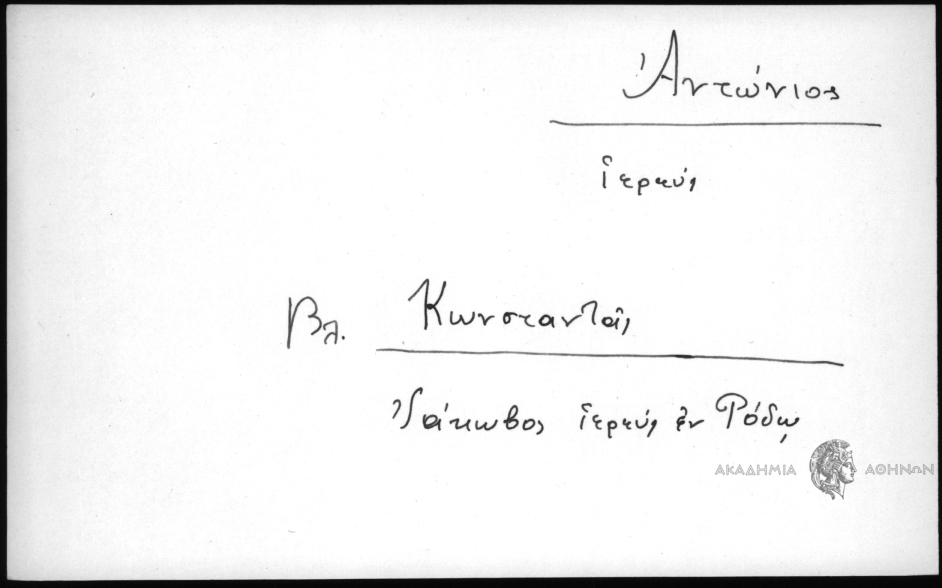 Ἀντώνιος
ἱερεύς
Βλ. Κωνσταντᾶς
Ἰάκωβος ἱερεύς ἐν Ρόδῳ
ΑΚΑΔΗΜΙΑ ΑΘΗΝΩΝ